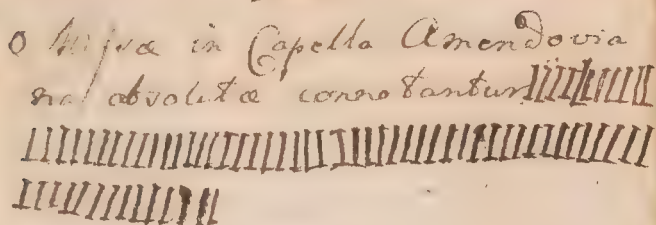 O Missæ in Capella Amendovia
na absolutæ connotantur